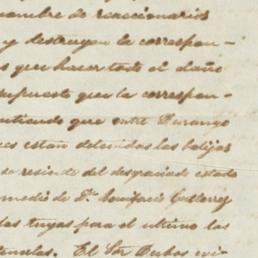 nombre de reaccionarios
y destruyen la correspon-
s que hacer todo el daño
supuesto que la correspon-
ntiendo que entre Durango
cas están detenidas las balijas
se resiente del desgraciado estado
medio de Dn. Bonifacio Gutierrez
das tuyas para el ultimo las
tenerlas. El Sor Dubos